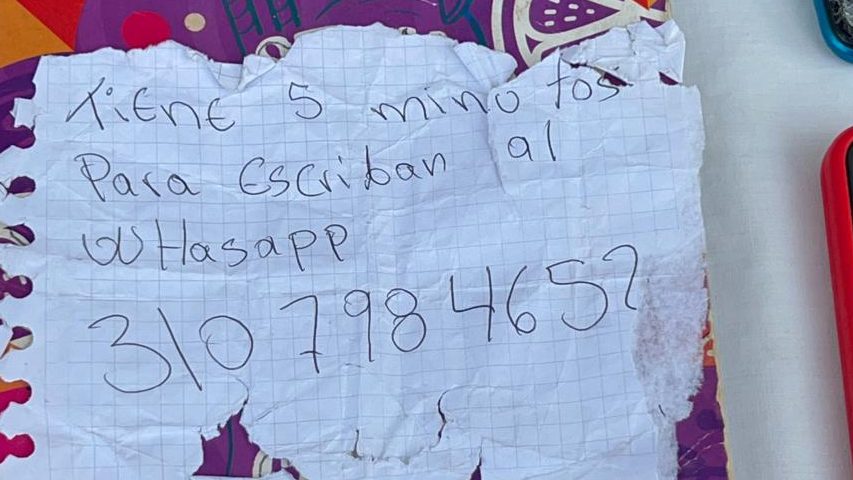 TiENE 5 minu tos
Para Escriban al
WHasapp
310 798 4652